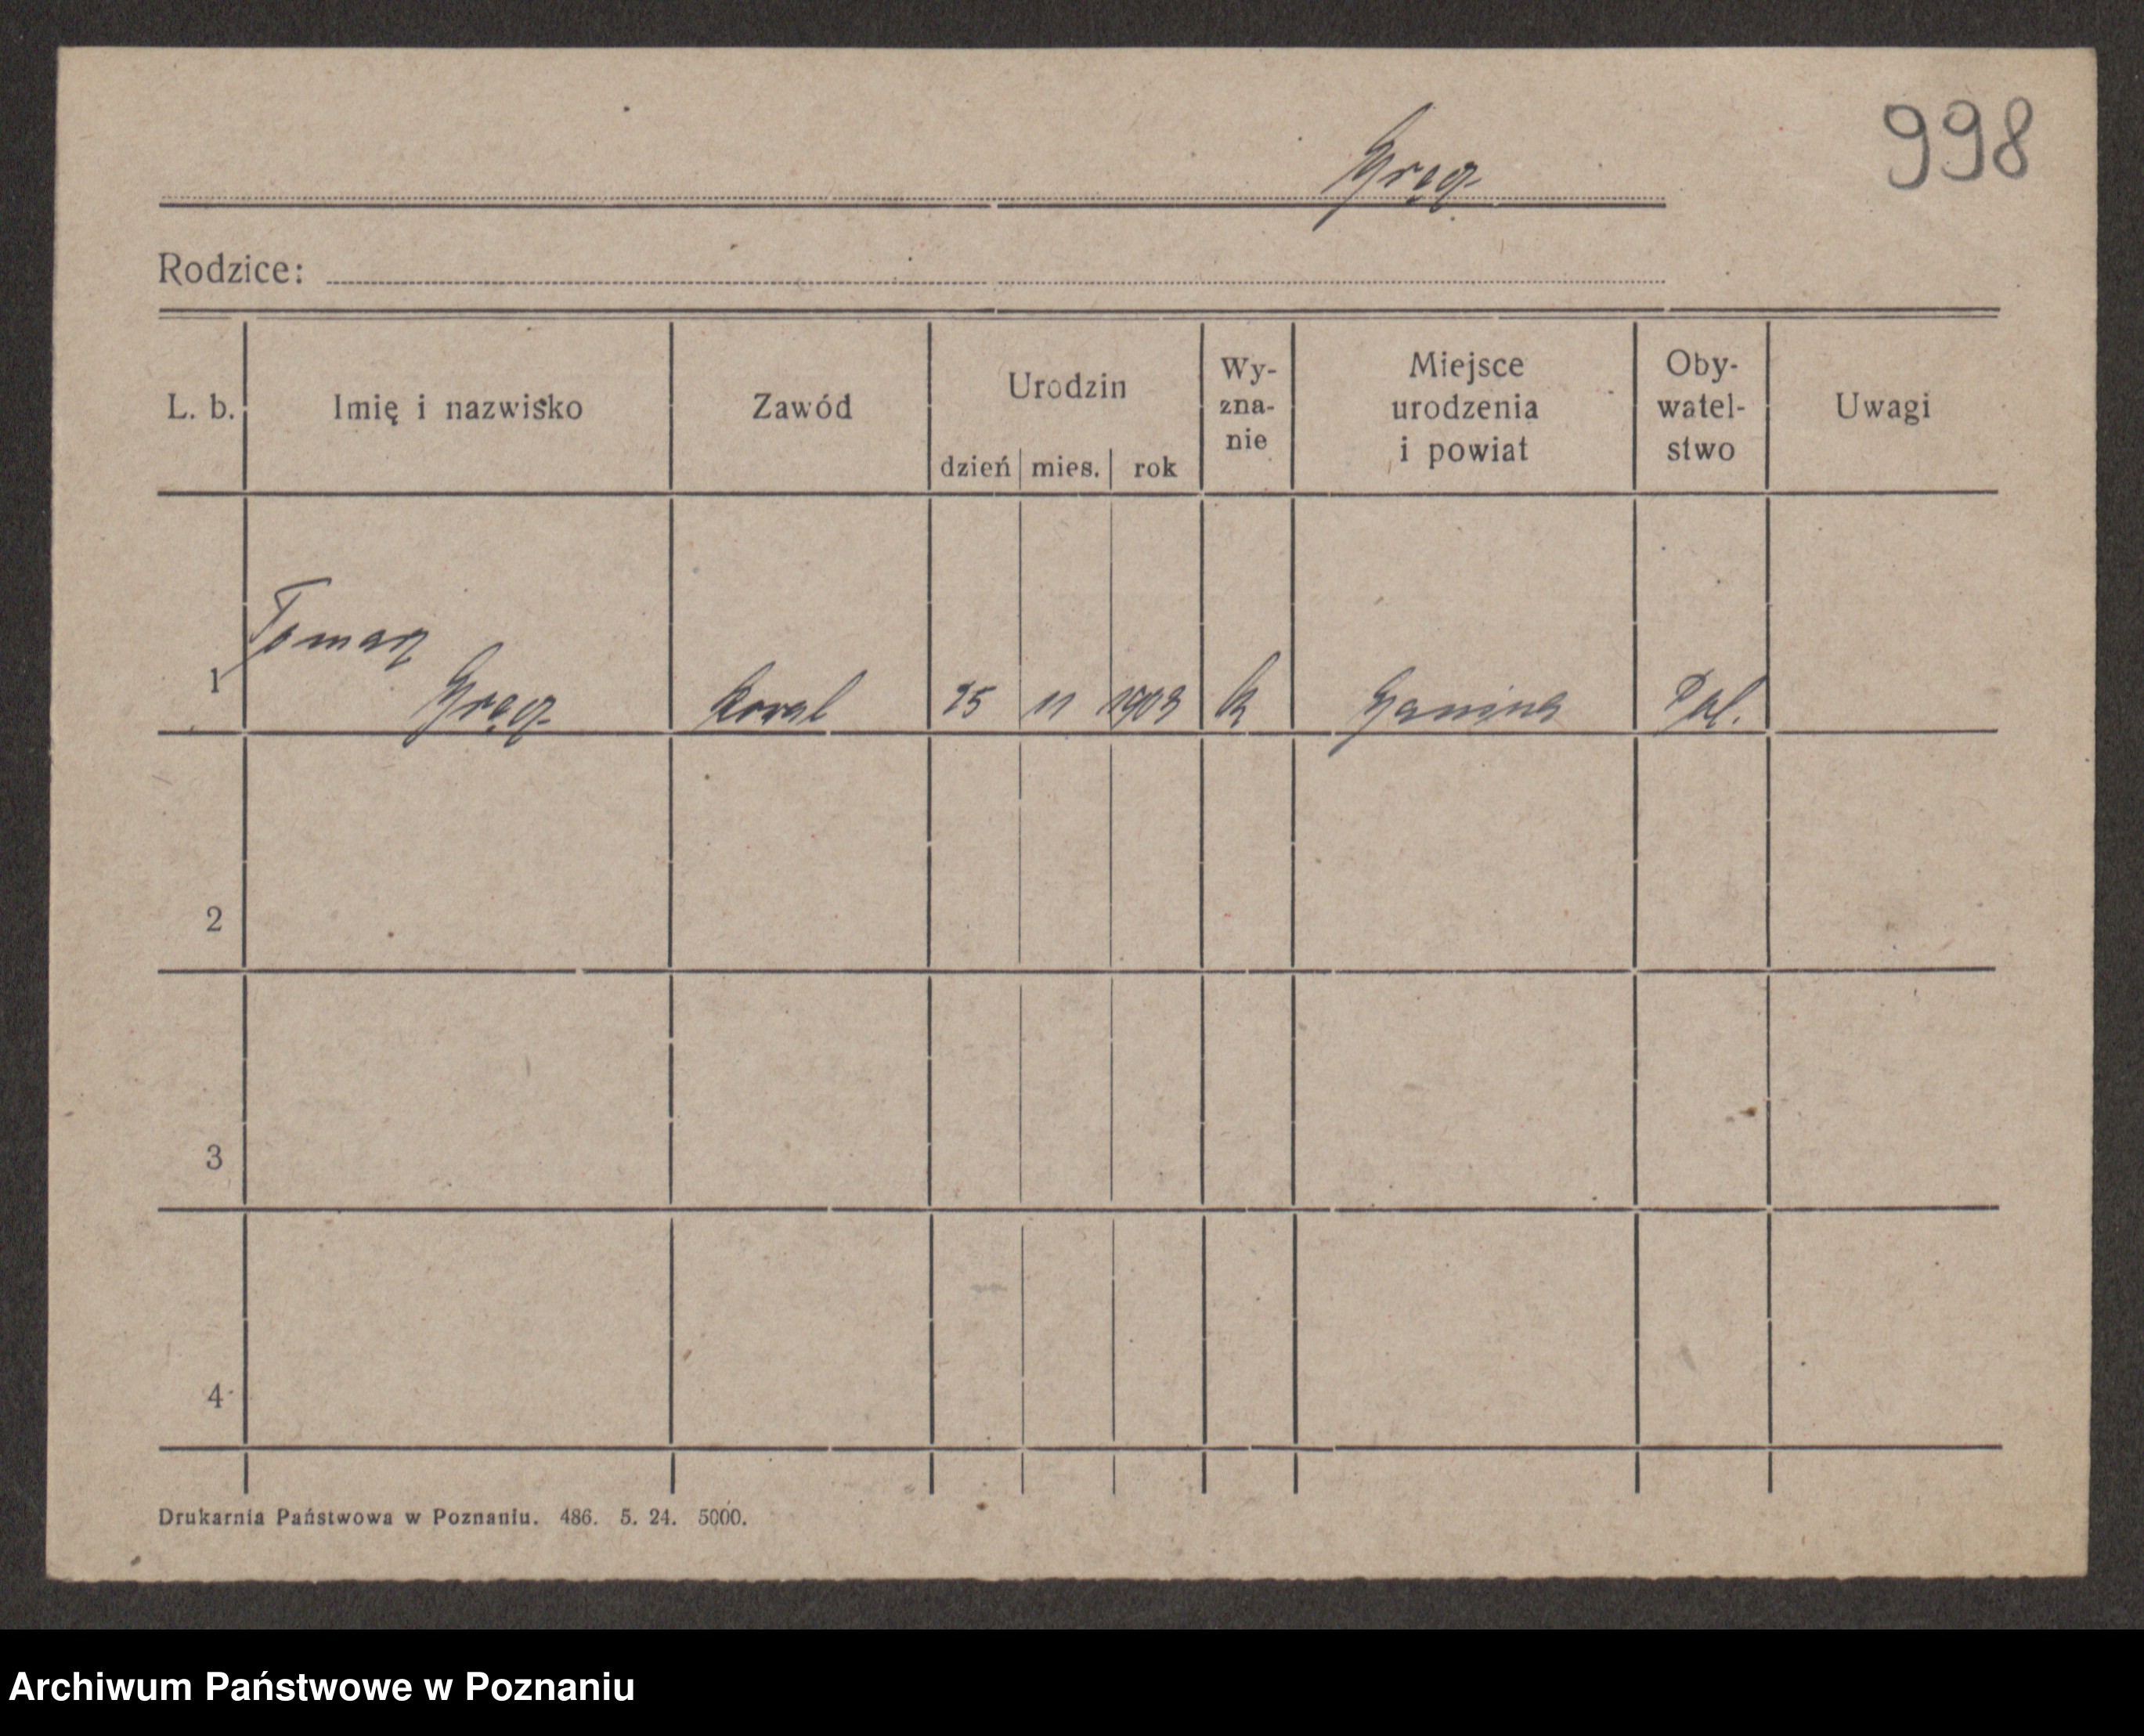 998
Gręz
Rodzice:
L. b. Imię i nazwisko Zawód Urodzin dzień mies. rok Wy-zna-nie Miejsce urodzenia i powiat Oby-watel-stwo Uwagi
Tomasz
1 Gręz kowal 25 11 1903 k Janina Pol.
2
3
4
Drukarnia Państwowa w Poznaniu. 486. 5. 24. 5000.
Archiwum Państwowe w Poznaniu